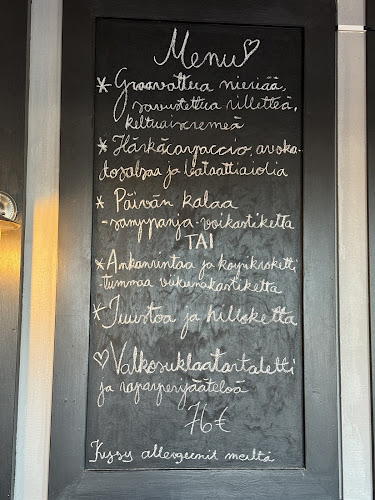 Menu♡
* Graavattua nieriää,
savustettua rilletteä,
keltuaiscremeä
* Härkäcarpaccio, avoka-
tosalsaa ja bataattiaiolia
* Päivän kalaa
-samppanja-voikastiketta
TAI
* Ankanrintaa ja kroketti
-tummaa viikunakastiketta
* Juustoa ja hilloketta
♡ Valkosuklaatartaletti
ja raparperijäätelöä
76€
Kysy allergeenit meiltä